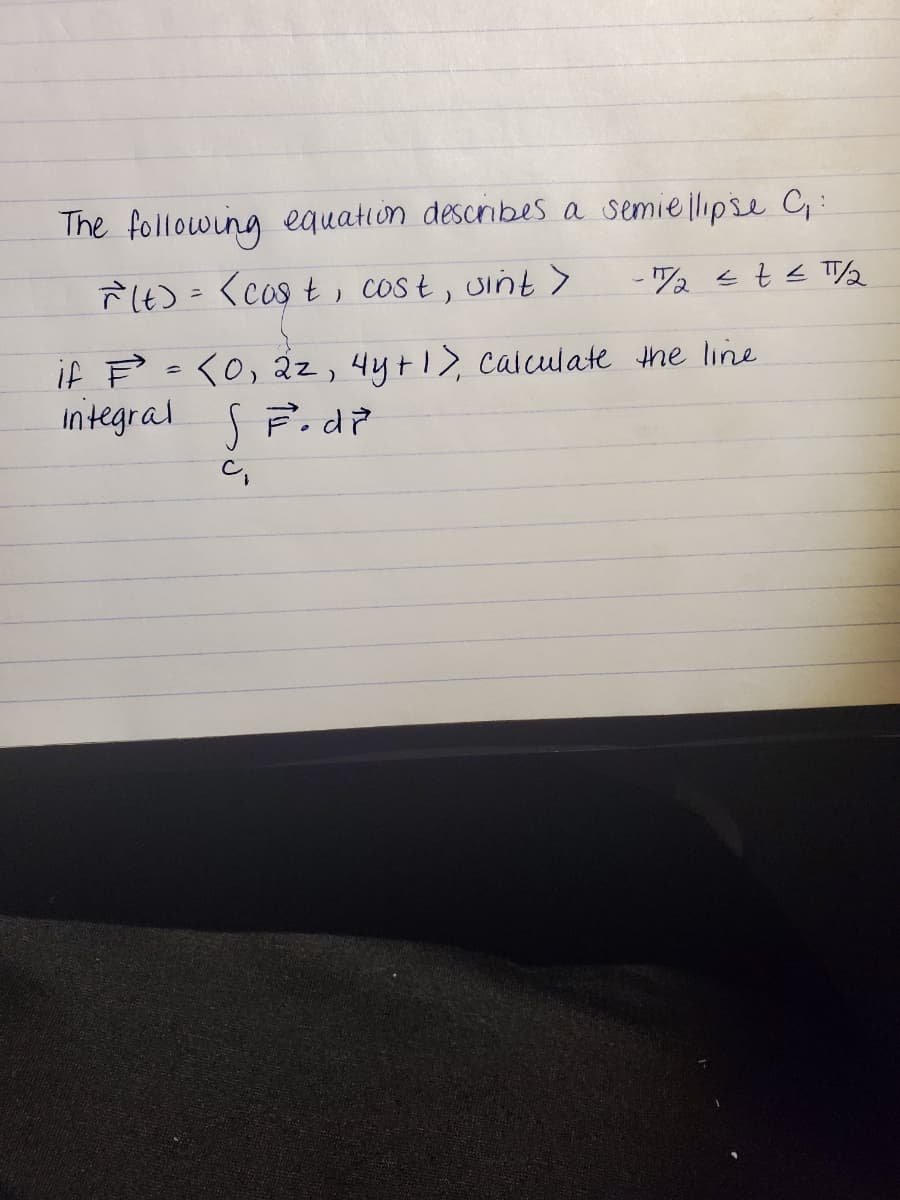 The following equation describes a semiellipse C₁:
r⃗(t) = <cos t, cos t, sint> -π/2 ≤ t ≤ π/2
if F⃗ = <0, 2z, 4y+1>, calculate the line
integral ∫ F⃗ · dr⃗
C₁